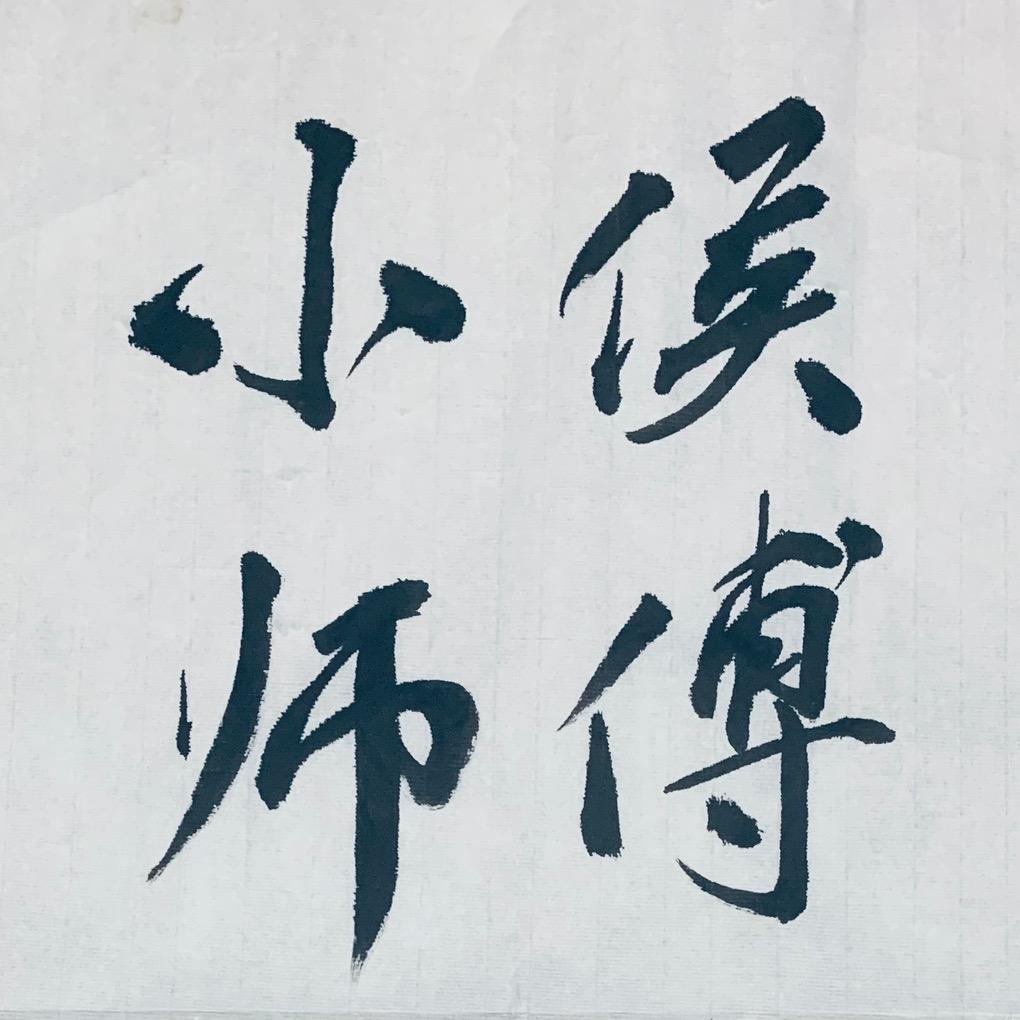 小侯
师傅